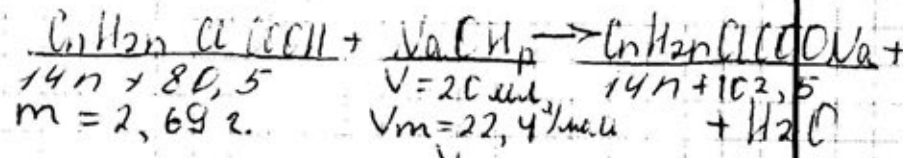 CnH2nClCOOH + NaOHp → CnH2nClCOONa +
14n + 80,5 V = 20 мл 14n + 102,5
m = 2,69 г. Vm = 22,4 л/моль + H2O